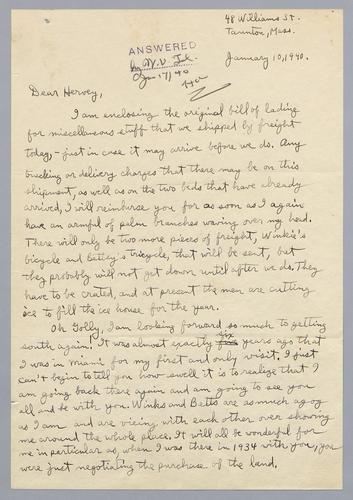 48 Williams St.
Taunton, Mass.
ANSWERED
January 10, 1940.
Jan 17/40
Dear Hervey,
I am enclosing the original bill of lading
for miscellaneous stuff that we shipped by freight
today, - just in case it may arrive before we do. Any
trucking or delivery charges that there may be on this
shipment, as well as on the two beds that have already
arrived, I will reimburse you for as soon as I again
have an armful of palm branches waving over my head.
There will only be two more pieces of freight, Winkie's
bicycle and Betty's tricycle, that will be sent, but
they probably will not get down until after we do. They
have to be crated, and at present the men are cutting
ice to fill the ice house for the year.
Oh Golly, I am looking forward so much to getting
south again. It was almost exactly six years ago that
I was in Miami for my first and only visit. I just
can't begin to tell you how swell it is to realize that I
am going back there again and am going to see you
all and be with you. Winks and Betts are as much agog
as I am and are vieing with each other over showing
me around the whole place. It will all be wonderful for
me in particular as, when I was there in 1934 with you, you
were just negotiating the purchase of the land.